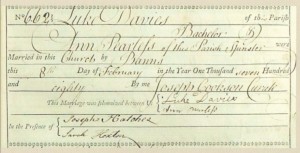 No 662 Luke Davies of the Parish
Bachelor
Ann Pearless of this Parish Spinster were
Married in this Church by Banns
this Day of February in the Year One Thousand seven Hundred
and eighty By me Joseph Cookson Curate
This Marriage was solemnized between Us Luke Davies
Ann
In the Presence of Joseph Hatcher
Sarah